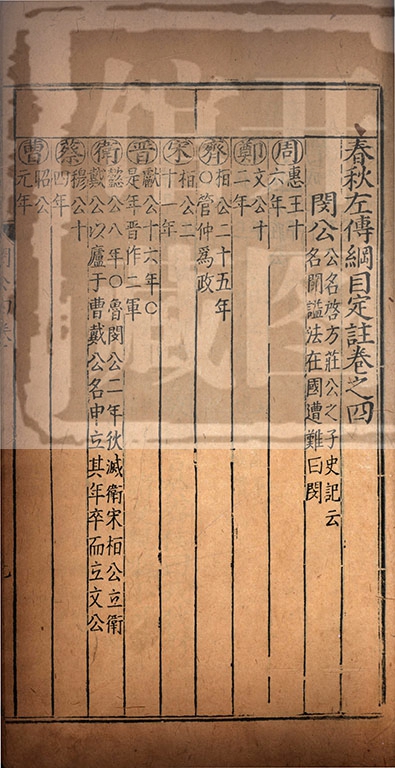 春秋左傳綱目定註卷之四
閔公
公名啓方莊公之子史記云
名開謚法在國遭難曰閔
周
惠王十
六年
鄭
文公十
二年
齊
桓公二十五年
〇管仲爲政
宋
桓公二
十一年
晉
獻公十六年〇
是年晉作二軍
衛
懿公八年〇魯閔公二年狄滅衛宋桓公立衛
戴公以廬于曹戴公名申立其年卒而立文公
蔡
穆公十
四年
曹
昭公
元年